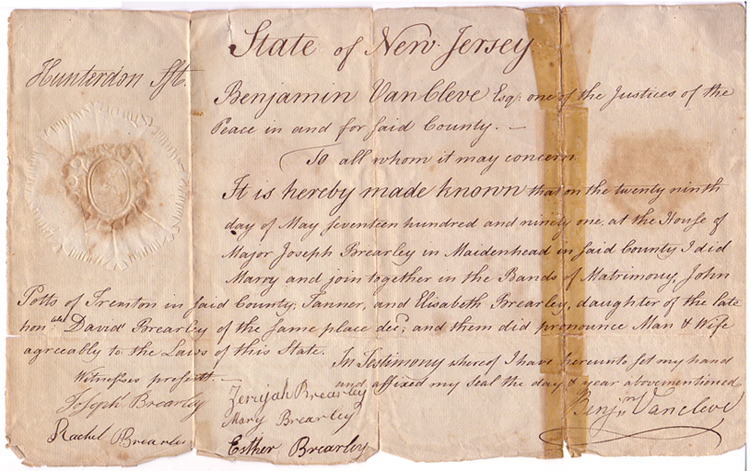 State of New Jersey
Hunterdon Sst.
Benjamin VanCleve Esqr. one of the Justices of the
Peace in and for said County. —
To all whom it may concern
It is hereby made known that on the twenty ninth
day of May seventeen hundred and ninety one, at the House of
Major Joseph Brearley in Maidenhead in said County I did
Marry and join together in the Bands of Matrimony, John
Potts of Trenton in said County, Tanner, and Elisabeth Brearley, daughter of the late
honble David Brearley of the same place decd, and them did pronounce Man & Wife
agreeably to the Laws of this State.
In Testimony whereof I have hereunto set my hand
and affixed my seal the day & year abovementioned
Witnesses present. —
Joseph Brearley
Rachel Brearley
Zerujah Brearley
Mary Brearley
Esther Brearley
Benjn. Vancleve